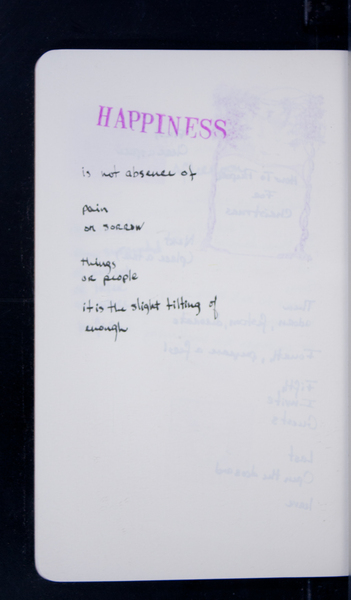 HAPPINESS
is not absence of
pain
or sorrow
things
or people
it is the slight tilting of
enough